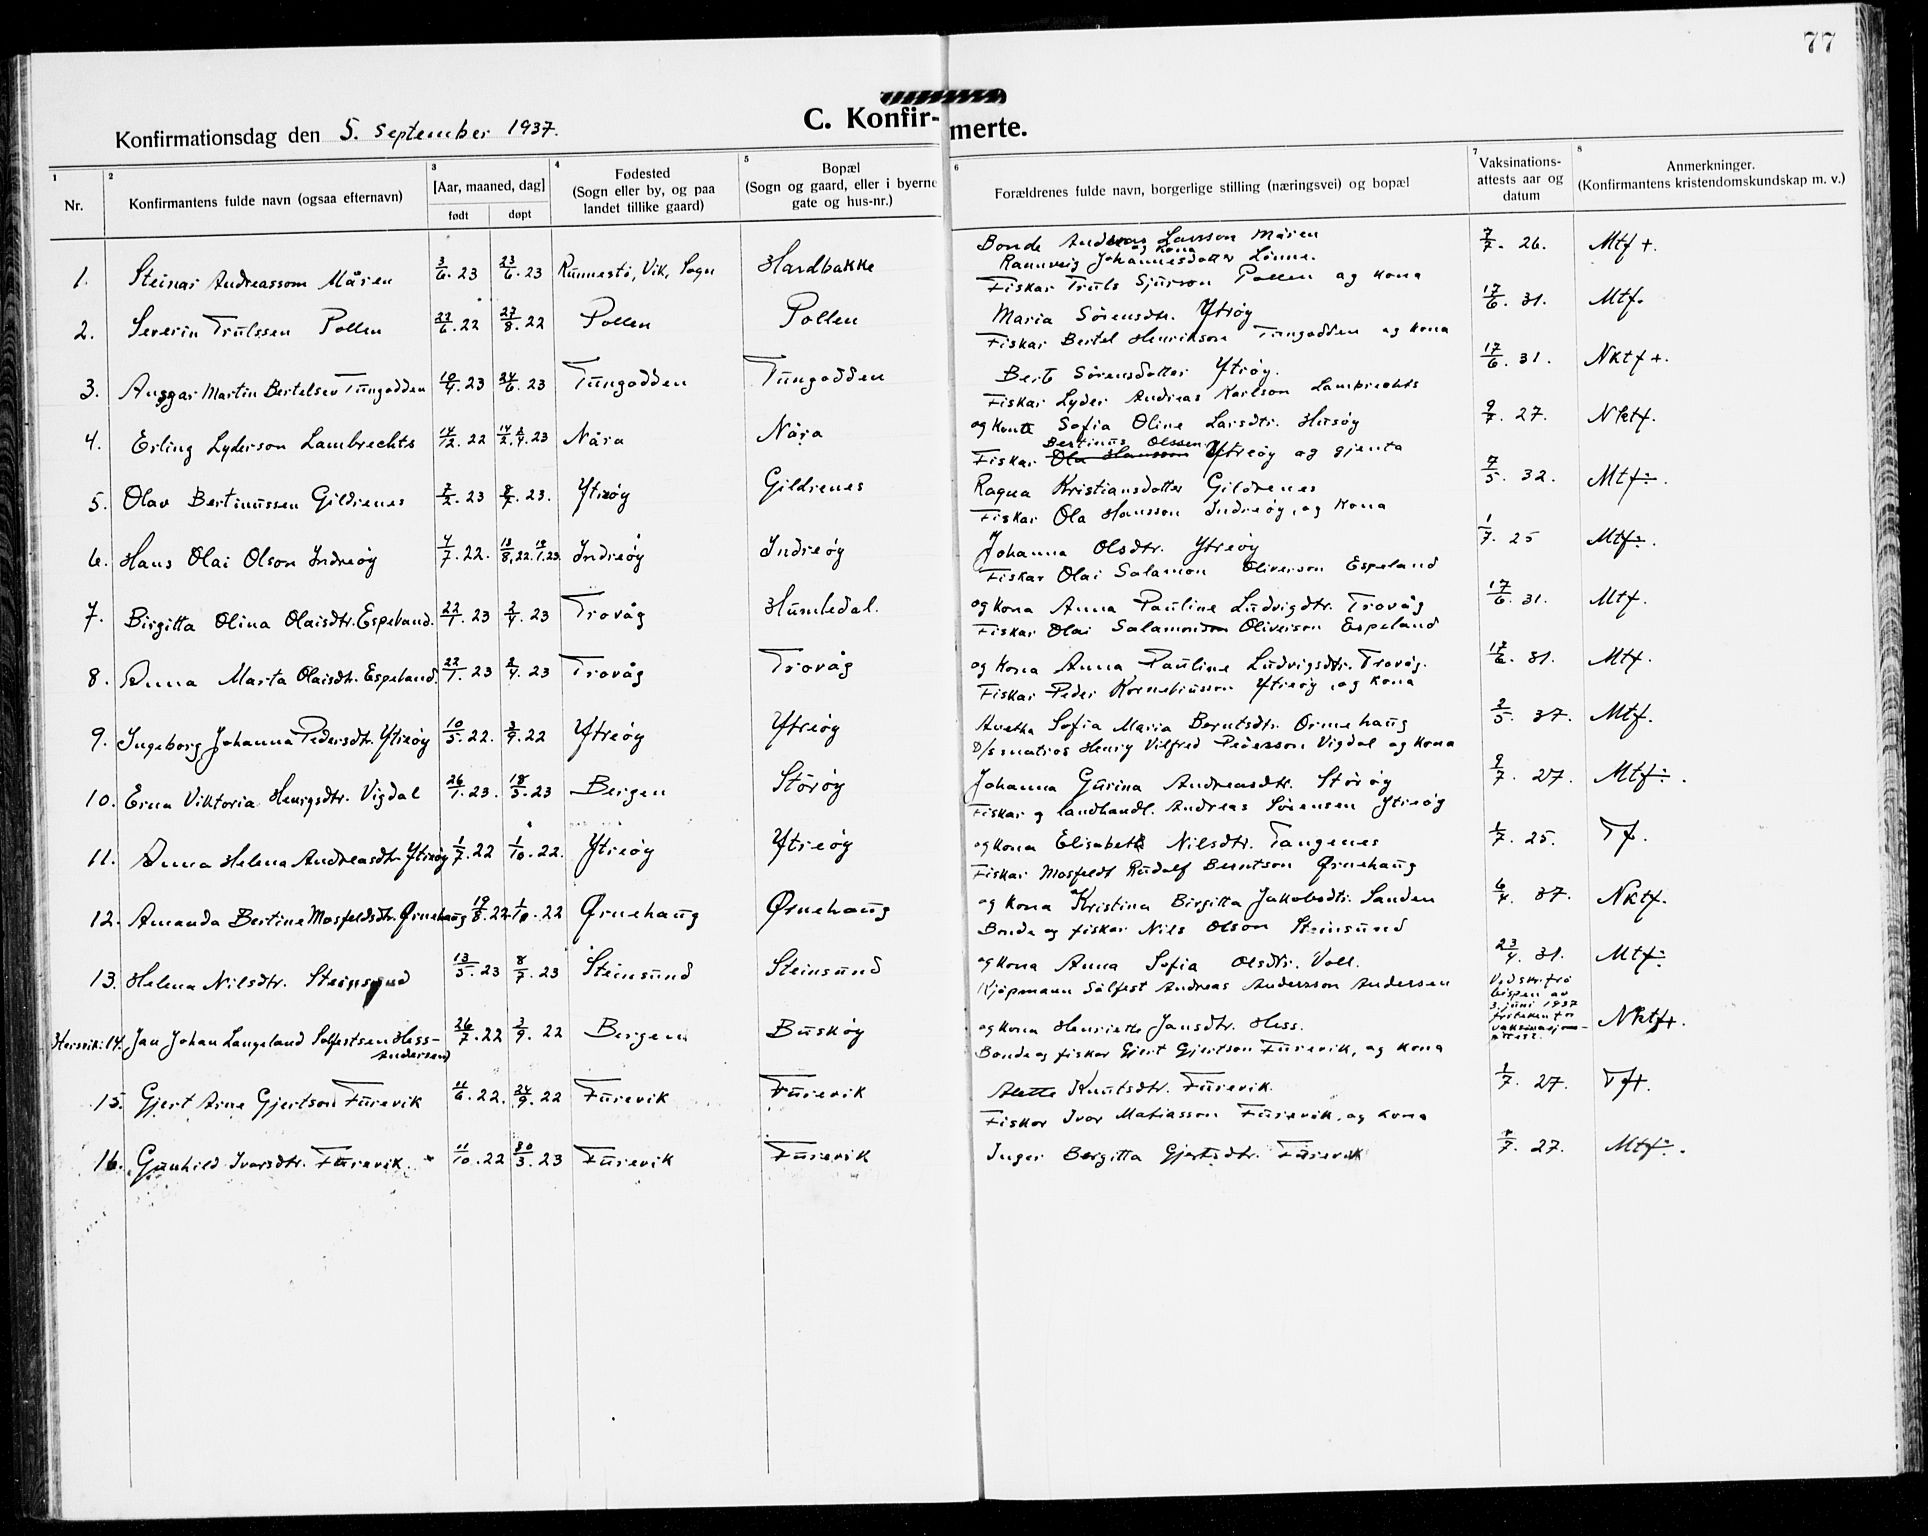 77
C. Konfirmerte.
Konfirmationsdag den 5. september 1937.
1 Nr.
2 Konfirmantens fulde navn (ogsaa efternavn)
3 [Aar, maaned, dag] født døpt
4 Fødested (Sogn eller by, og paa landet tillike gaard)
5 Bopæl (Sogn og gaard, eller i byerne gate og hus-nr.)
6 Forældrenes fulde navn, borgerlige stilling (næringsvei) og bopæl
7 Vaksinations-attests aar og datum
8 Anmerkninger. (Konfirmantens kristendomskundskap m. v.)
1. Steinar Andreassom Måren 3/6.23 23/6.23 Runnestø, Vik, Sogn Hardbakke Bonde Andreas Larsson Måren og kona Rannveig Johannesdotter Lønne. 7/7. 26. Mtf +.
2. Severin Trulssen Pollen 22/6.22 27/8.22 Pollen Pollen Fiskar Truls Sjurson Pollen og kona Maria Sørensdtr. Ytrøy 17/6. 31. Mtf.
3. Ansgar Martin Bertelsen Tungodden 10/4.23 24/6.23 Tungodden Tungodden Fiskar Bertel Henrikson Tungodden og kona Berte Sørensdotter Ytrøy. 17/6. 31. Nktf +.
4. Erling Lyderson Lambrechts 14/12.22 14/2. 2/4.23 Nåra Nåra Fiskar Lyder Andreas Karlson Lambrechts og kona Sofia Oline Larsdtr. Husøy 9/7. 27. Nktf.
5. Olav Bertinussen Gildrenes 7/2.23 8/7.23. Ytreøy Gildrenes Fiskar Bertinus Olssen Ola Hansson Ytreøy og gjenta Ragna Kristiansdotter Gildrenes 7/5. 32. Mtf÷.
6. Hans Olai Olson Indreøy 4/7.22. 13/8.22. 19/1.23 Indreøy Indreøy Fiskar Ola Hansson Indreøy, og kona Johanna Olsdtr. Ytreøy 1/7. 25 Mtf÷.
7. Birgitta Olina Olaisdtr. Espeland. 22/1.23 2/4.23 Trovåg Humledal. Fiskar Olai Salamon Oliverson Espeland og kona Anna Pauline Ludvigdtr. Trovåg 17/6. 31. Mtf.
8. Anna Marta Olaisdtr. Espeland. 22/1.23 2/4.23 Trovåg Trovåg Fiskar Olai Salamonson Oliverson Espeland og kona Anna Pauline Ludvigsdtr. Trovåg. 17/6. 31. Mtf.
9. Ingeborg Johanna Pedersdtr. Ytreøy 10/5.22. 3/9.22 Ytreøy Ytreøy Fiskar Peder Korneliusson Ytreøy, og kona Anetha Sofia Maria Berntsdtr. Ørnehaug 3/5. 37. Mtf.
10. Erna Viktoria Henrysdtr. Vigdal 26/1.23. 18/3.23 Bergen Storøy D/s matros Henry Vilfred Pedersson Vigdal og kona Johanna Gurina Andreasdtr. Storøy 9/7. 27. Mtf÷.
11. Anna Helena Andreasdtr. Ytreøy 1/7.22 1/10.22. Ytreøy Ytreøy Fiskar og landhandl. Andreas Sørensen Ytreøy og kona Elisabeth Nilsdtr. Tangenes 1/7. 25. Tf.
12. Amanda Bertine Mosfeldsdtr. Ørnehaug 19/8.22 1/10.22 Ørnehaug Ørnehaug Fiskar Mosfeldt Rudolf Berntson Ørnehaug og kona Kristina Birgitta Jakobsdtr. Sanden 6/4. 37. Nktf.
13. Helena Nilsdtr. Steinsund 13/5.23 8/7.23 Steinsund Steinsund Bonde og fiskar Nils Olson Steinsund og kona Anna Sofia Olsdtr. Voll. 23/4. 31. Mtf÷
Hersvik: 14. Jan Johan Langeland Solfestsen Hess-Andersen 26/7.22 3/9.22 Bergen Buskøy Kjøpmann Solfest Andreas Andersson Andersen og kona Henriette Jansdtr. Hess. Ved skr. frå bispen av 3 juni 1937 friteken for vaksinasjons-attest. Nktf+.
15. Gjert Arne Gjertson Furevik 11/6.22. 24/9.22 Furevik Furevik Bonde og fiskar Gjert Gjertson Furevik, og kona Alette Knutsdtr. Furevik 1/7. 27. Tf+.
16. Gunhild Ivarsdtr. Furevik. 11/10.22 30/3.23 Furevik Furevik Fiskar Ivar Matiasson Furevik, og kona Inger Bergitta Gjertsdtr. Furevik 7. 27. Mtf÷.